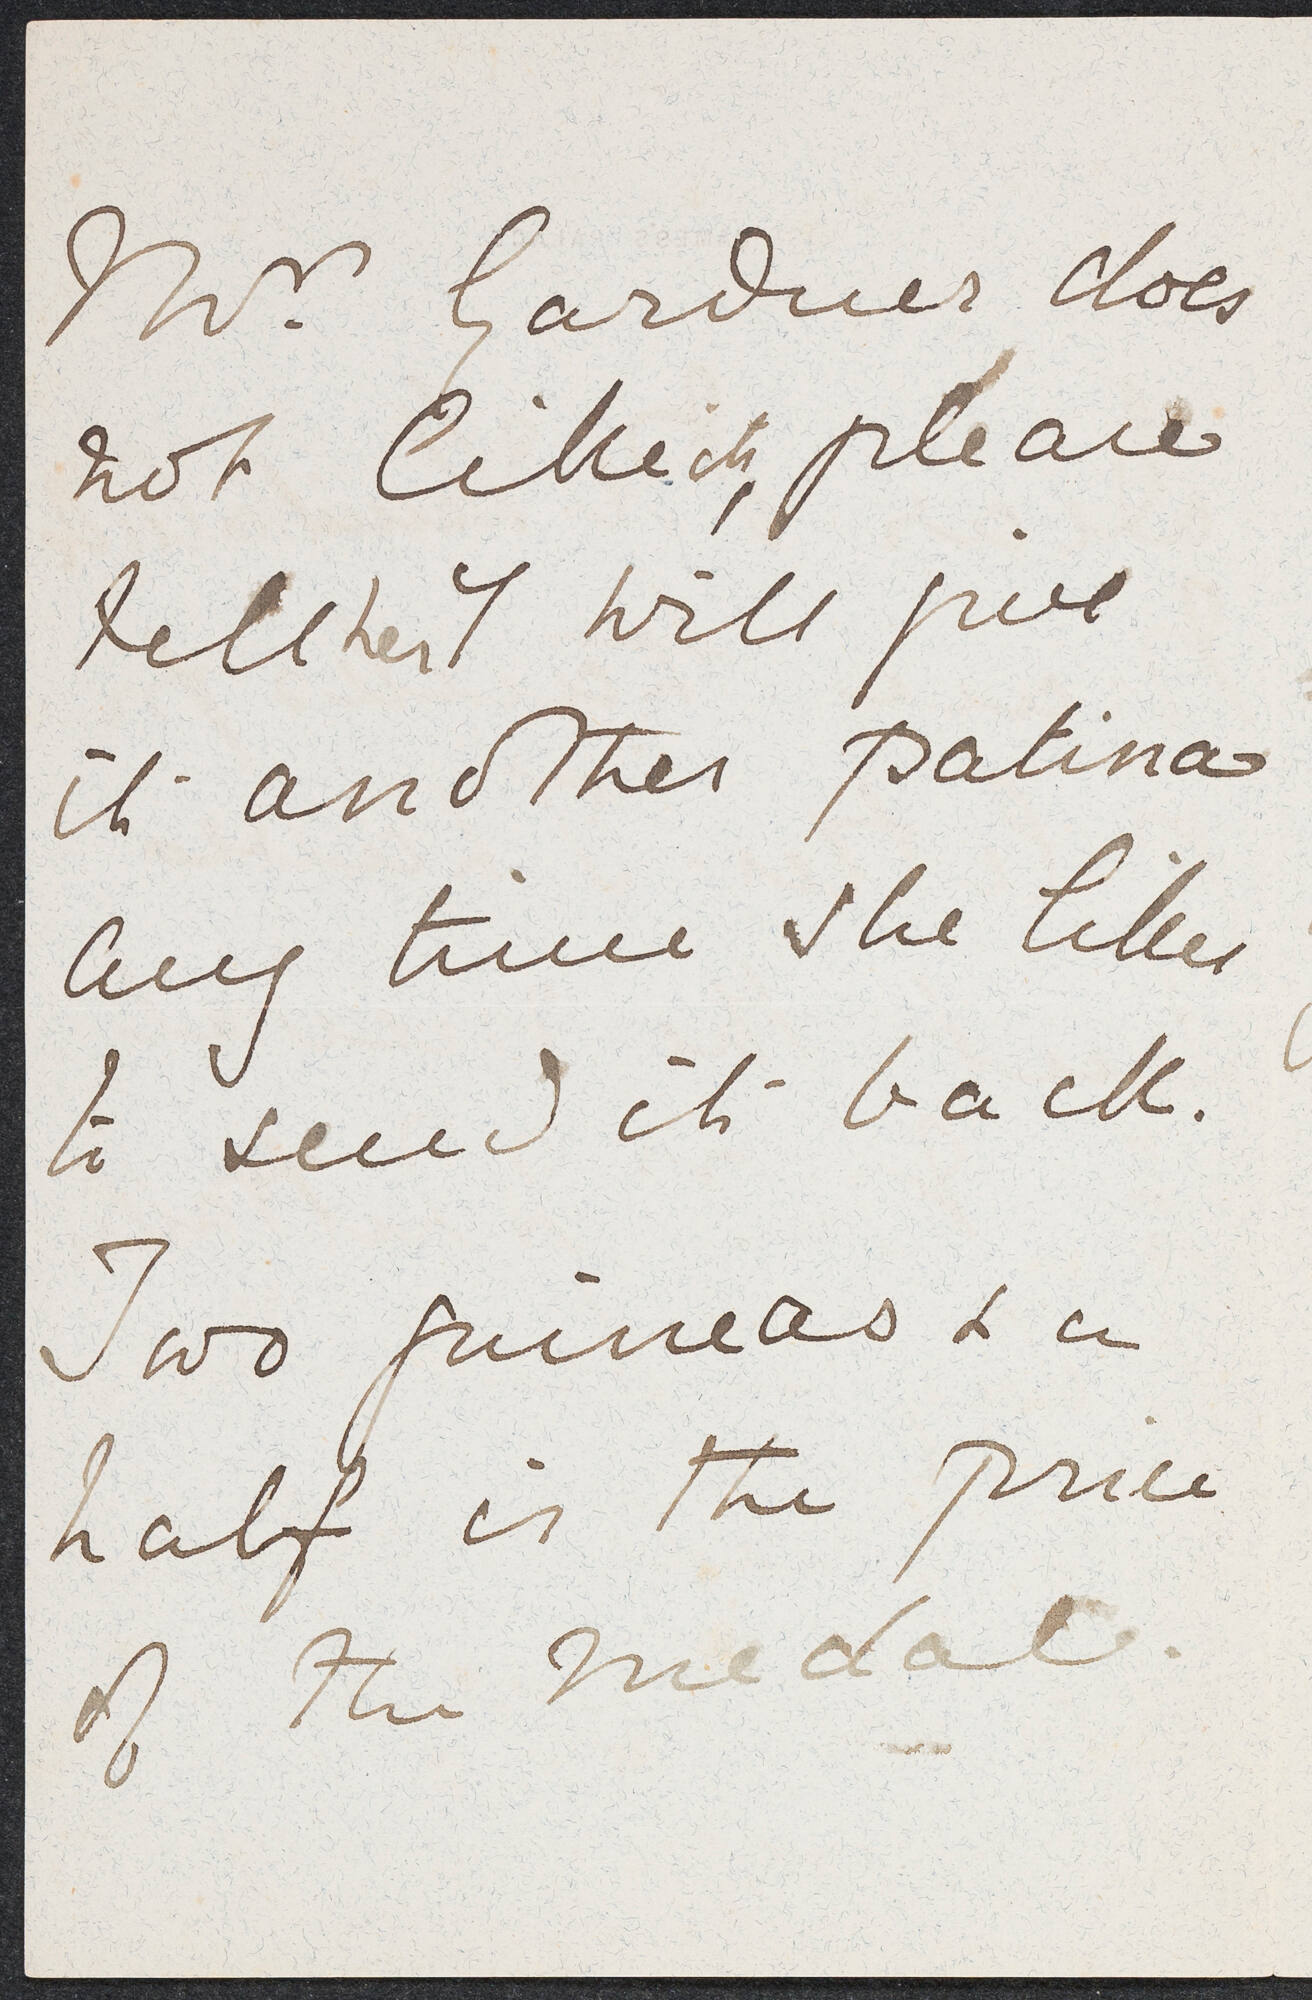 Mrs. Gardner does
not like it, please
tell her I will give
it another patina
any time she likes
to send it back.
Two guineas & a
half is the price
of the medal.